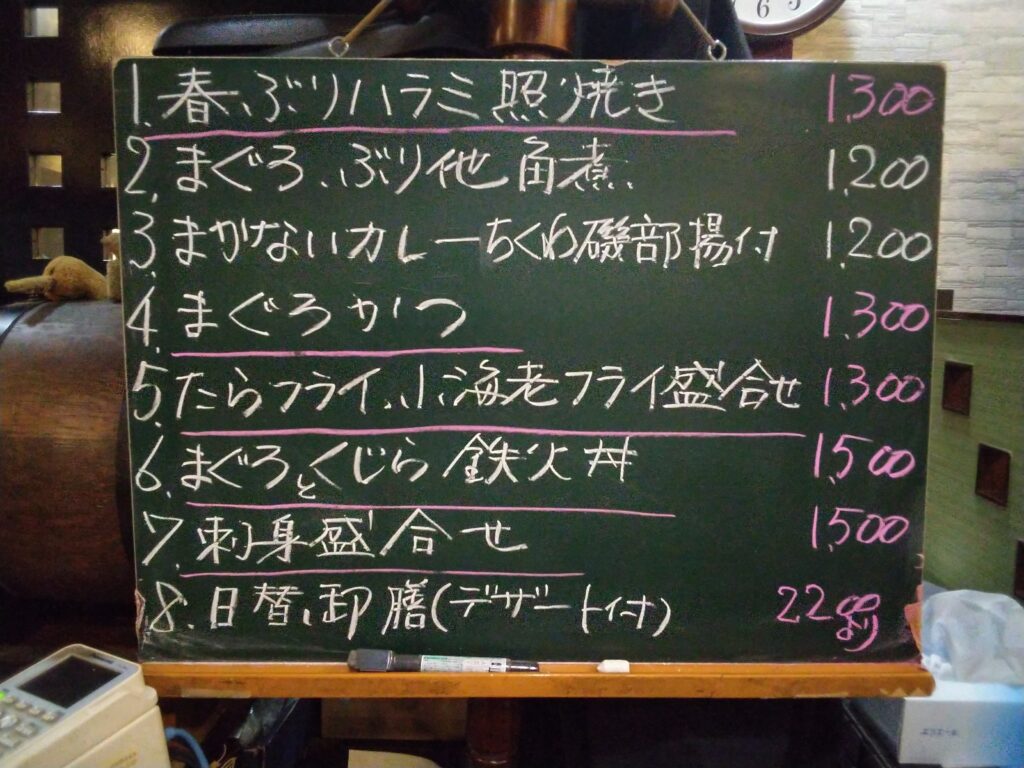 1. 春、ぶりハラミ照焼き 1,300
2. まぐろ、ぶり他 角煮 1,200
3 まかないカレーちくわ磯部揚付 1,200
4. まぐろかつ 1,300
5. たらフライ、小海老フライ盛合せ 1,300
6. まぐろとくじら鉄火丼 1,500
7. 刺身盛合せ 1,500
8. 日替、御膳(デザート付) 2200より